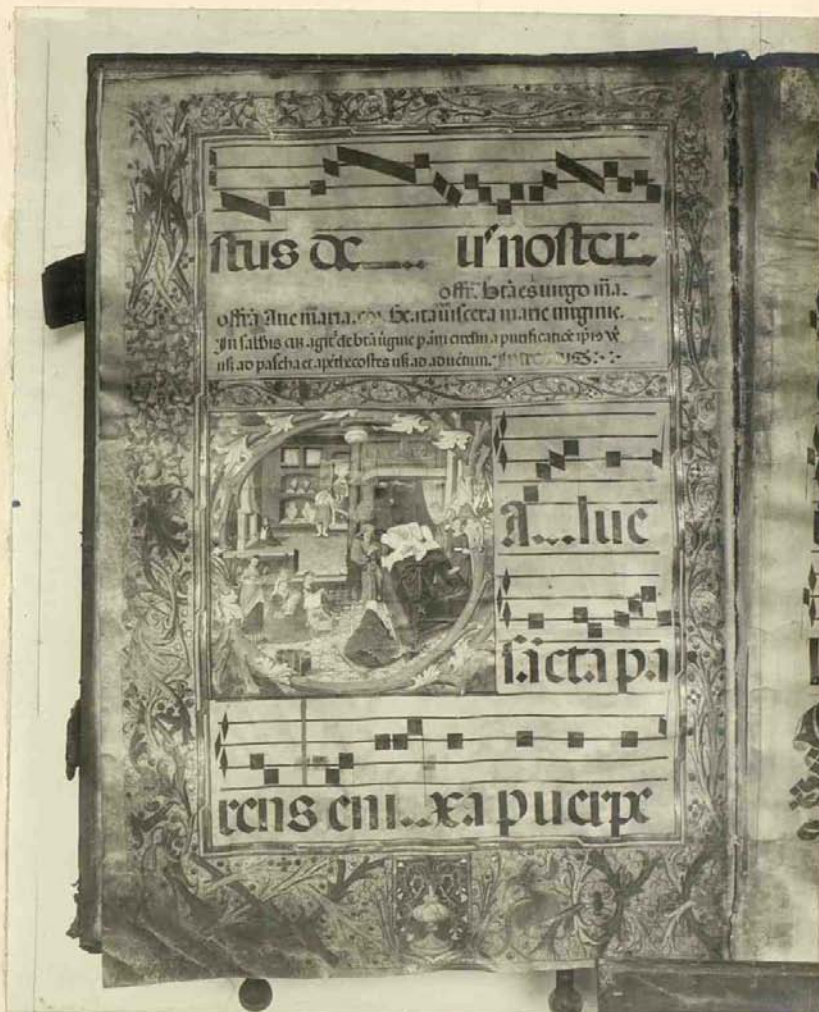 stus de u' noster.
offr. bt̄a es uirgo m̄a.
offr̄a Aue m̄aria. co. Beata uiscera marie uirginis.
In salbis agit' de bt̄a uigine a purificatiōe
usq ad pascha et apēthecostes usq ad aduētum.
A....lue
s.ācta pa
rens eni..xa puerpe